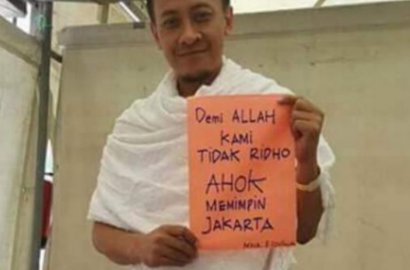 Demi ALLAH
KAMI
TIDAK RIDHO
AHOK
MEMIMPIN
JAKARTA